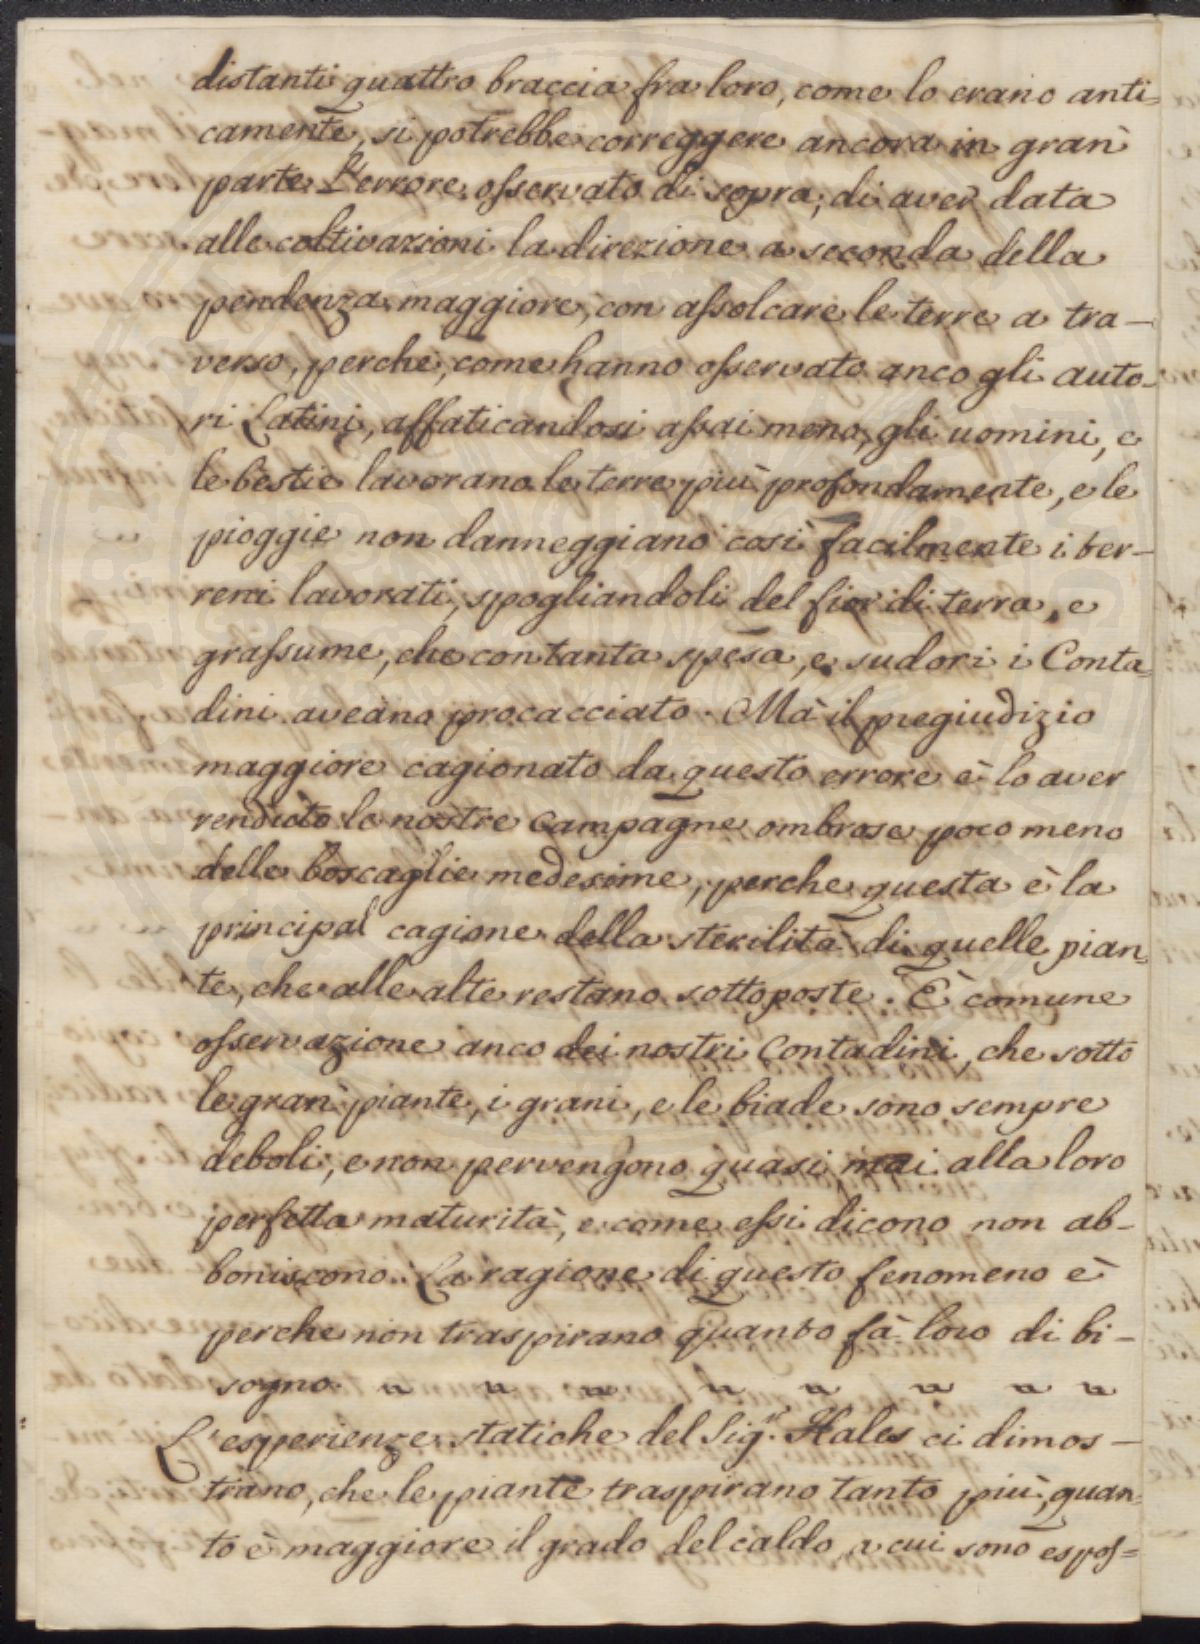 distanti quattro braccia fra loro, come lo erano anti=
camente, si potrebbe correggere ancora in gran
parte l'errore osservato di sopra, di aver data
alle coltivazioni la direzione a seconda della
pendenza maggiore, con assolcare le terre a tra-
verso, perche, come hanno osservato anco gli auto-
ri Latini, affaticandosi assai meno, gli uomini, e
le bestie lavorano le terre più profondamente, e le
pioggie non danneggiano così facilmente i ter-
reni lavorati, spogliandoli del fior di terra, e
grassume, che con tanta spesa, e sudori i Conta=
dini aveano procacciato. Mà il pregiudizio
maggiore cagionato da questo errore è lo aver
renduto le nostre Campagne ombrose poco meno
delle boscaglie medesime, perche questa è la
principal cagione della sterilità di quelle pian=
te, che alle alte restano sottoposte. È comune
osservazione anco dei nostri Contadini, che sotto
le gran piante, i grani, e le biade sono sempre
deboli, e non pervengono quasi mai alla loro
perfetta maturità, e come essi dicono non ab-
boniscono. La ragione di questo fenomeno è
perche non traspirano quanto fà loro di bi-
sogno.
L'esperienze statiche del Sig.r Hales ci dimos-
trano, che le piante traspirano tanto più, quan=
to è maggiore il grado del caldo, a cui sono espos=